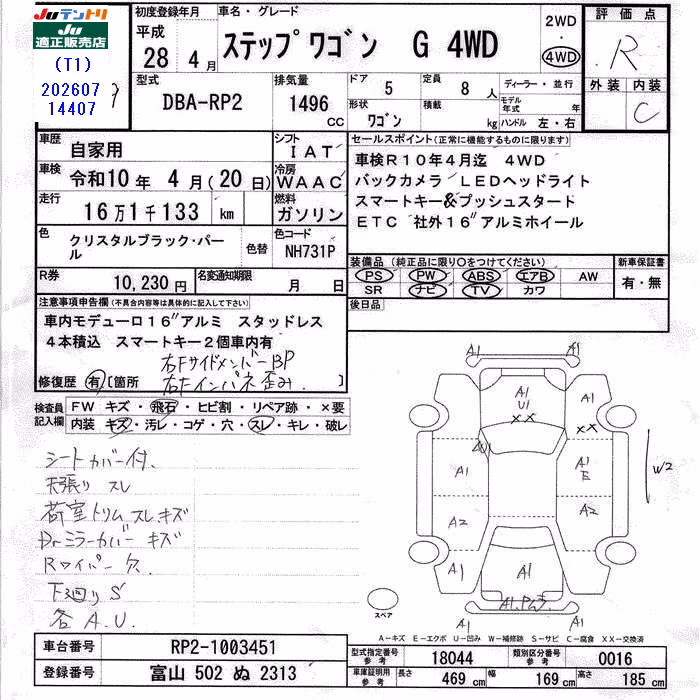 JUテントリ
JU
適正販売店
(T1)
202607
14407
初度登録年月
平成
28 年 4 月
車名・グレード
ステップ ワゴン G 4WD
2WD
・
4WD
評 価 点
R
外 装 内 装
C
型式
DBA-RP2
排気量
1496 CC
ドア 5
形状 ワゴン
定員 8 人
積載 kg
ディーラー・並行
モデル年式 年
ハンドル 左・右
車歴 自家用
シフト IAT
車検 令和10 年 4 月 (20 日)
冷房 WAAC
走行 16 万 1 千 133 km
燃料 ガソリン
色 クリスタルブラック・パール
色替
色コード NH731P
R券 10,230 円
名変通知期限 月 日
セールスポイント(正常に機能するものに限ります)
車検R10年4月迄 4WD
バックカメラ LEDヘッドライト
スマートキー&プッシュスタード
ETC 社外16"アルミホイール
装備品 (純正品に限り○をつけてください)
PS PW ABS エアB AW
SR ナビ TV カワ
新車保証書
有・無
後日品
注意事項申告欄(不具合内容等は具体的に記入して下さい)
車内モデューロ16"アルミ スタッドレス
4本積込 スマートキー2個車内有
右Fサイドメンバー BP
修復歴 有 [箇所 右Fインパネ歪み
検査員記入欄
FW キズ・飛石・ヒビ割・リペア跡・×要
内装 キズ・汚レ・コゲ・穴・スレ・キレ・破レ
シートカバー付.
天張り スレ
荷室トリム スレ キズ
Drミラーカバー キズ
Rワイパー欠.
下廻り S
各 A.U.
A1
A1
A1 U1 ××
A1 ××
A1
4U1
A1
A1 E
W2
A2
A2
A1
A1
A1
A1.
A1
A1
スペア
A-キズ E-エクボ U-凹み W-補修跡 S-サビ C-腐食 XX-交換済
車台番号 RP2-1003451
登録番号 富山 502 ぬ 2313
型式指定番号 参考 18044
類別区分番号 参考 0016
車庫証明用 参考 長さ 469 cm 幅 169 cm 高さ 185 cm